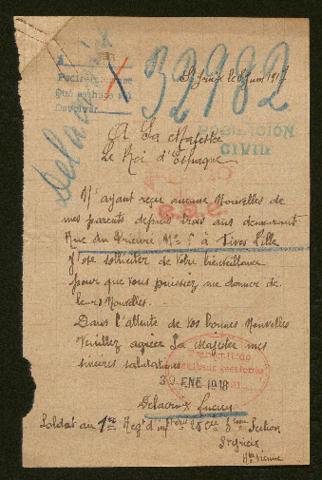 Delacroix
32982
St Yrieix le Juin 1917
POBLACIÓN
CIVIL
A Sa Majesté
Le Roi d'Espagne
N'ayant reçu aucune Nouvelles de
mes parents depuis trois ans demeurant
Rue du Prieuré No à Fives Lille
J'ose solliciter de Votre bienveillance
pour que vous puissiez me donner de
leurs Nouvelles.
Dans l'attente de vos bonnes Nouvelles
Veuillez agréer Sa Majesté mes
sincères salutations
30 ENE 1918
Delacroix
Soldat au Regt d'infterie 28 Cie 3ème Section
St Yrieix
Hte Vienne